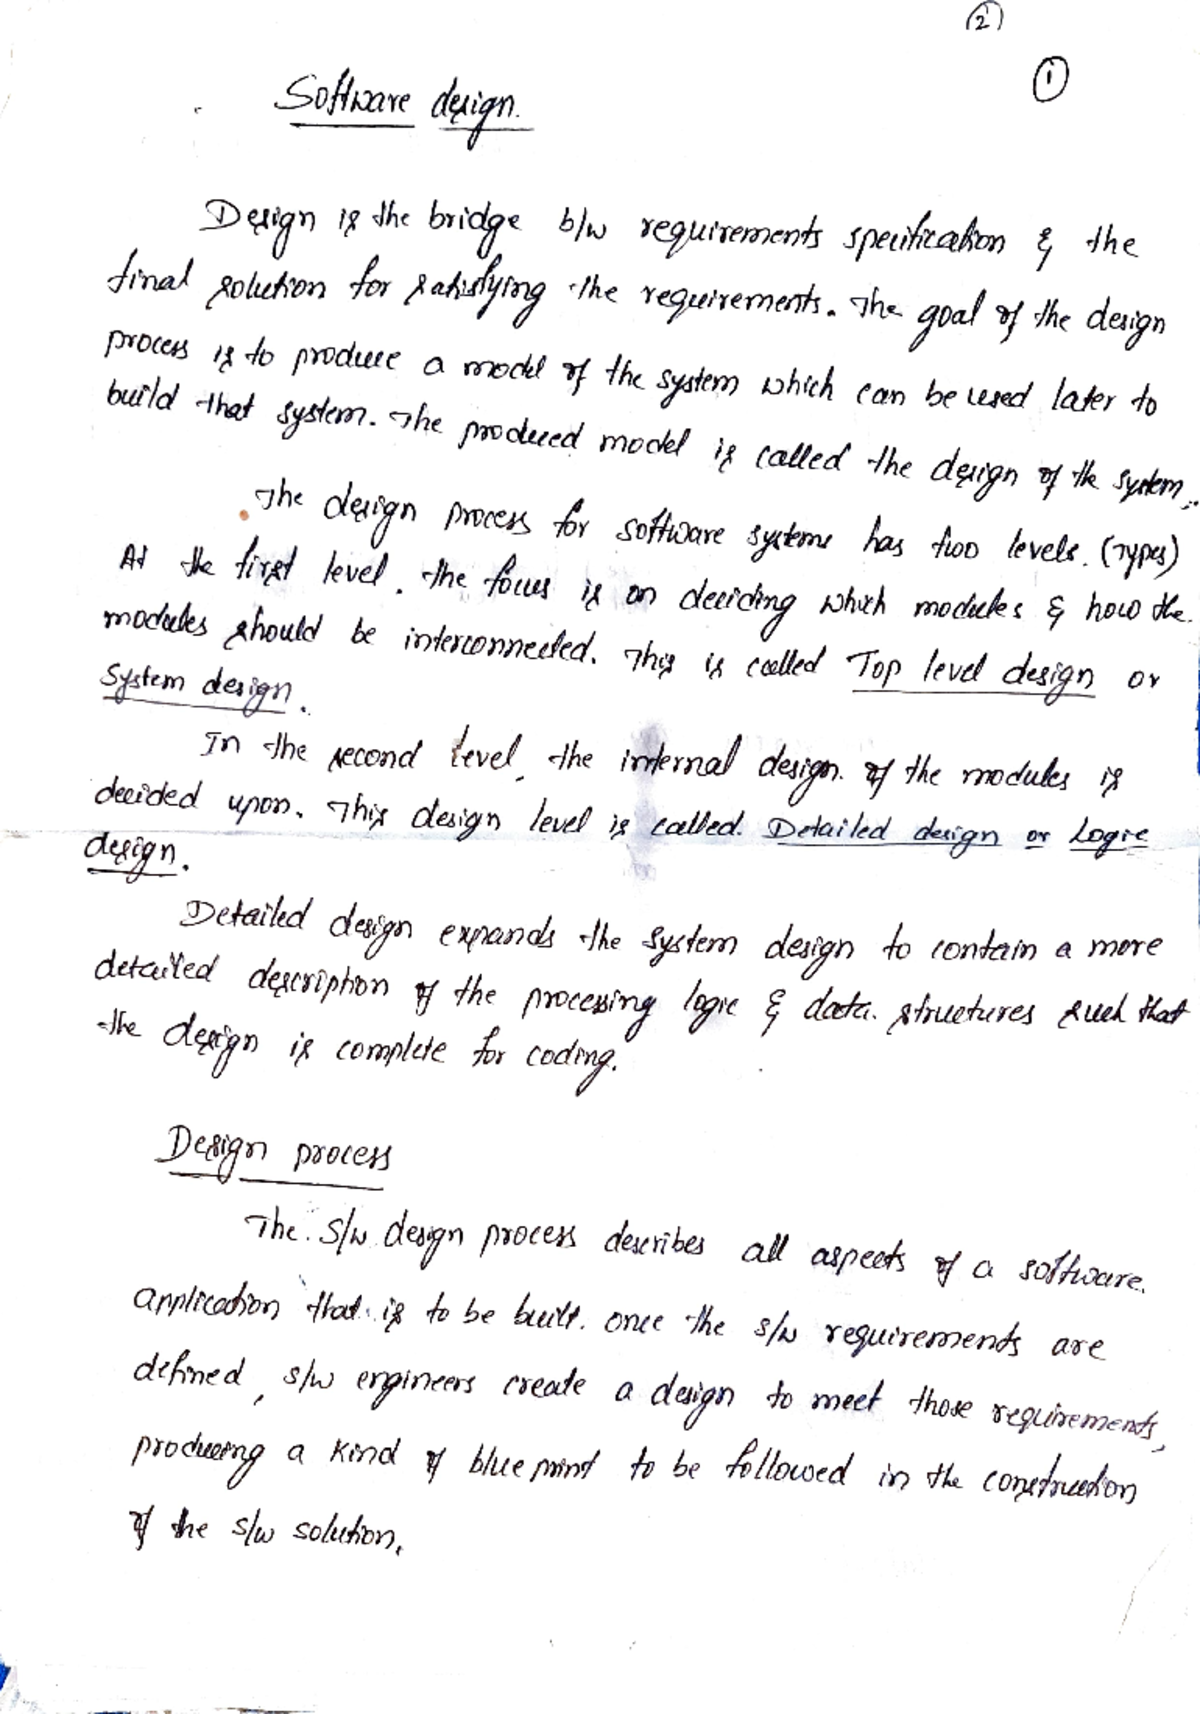 2
1
Software design.
Design is the bridge b/w requirements specification & the
final solution for satisfying the requirements. The goal of the design
process is to produce a model of the system which can be used later to
build that system. The produced model is called the design of the system.
The design process for software systems has two levels. (Types)
At the first level, the focus is on deciding which modules & how the
modules should be interconnected. This is called Top level design or
System design.
In the second level, the internal design of the modules is
decided upon. This design level is called Detailed design or Logic
design.
Detailed design expands the system design to contain a more
detailed description of the processing logic & data structures such that
the design is complete for coding.
Design process
The S/W design process describes all aspects of a software
application that is to be built. once the s/w requirements are
defined, s/w engineers create a design to meet those requirements,
producing a kind of blue print to be followed in the construction
of the s/w solution.